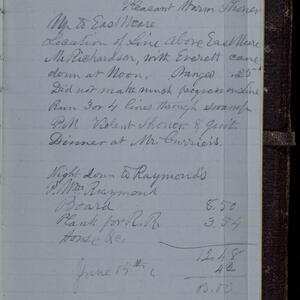 Pleasant Warm Shower
Up to East Weare
Location of Line above East Weare
Mr. Richardson, with Everett came
down at Noon. Oranges .25
Did not make much progress on Line
Run 3 or 4 lines through swamp
P.M. Violent Shower &
Dinner at Mr. Currier's.
Night down to Raymond's
P. Mrs Raymond
Board 8.50
Plank for R.R 3.54
12.48
June 15th